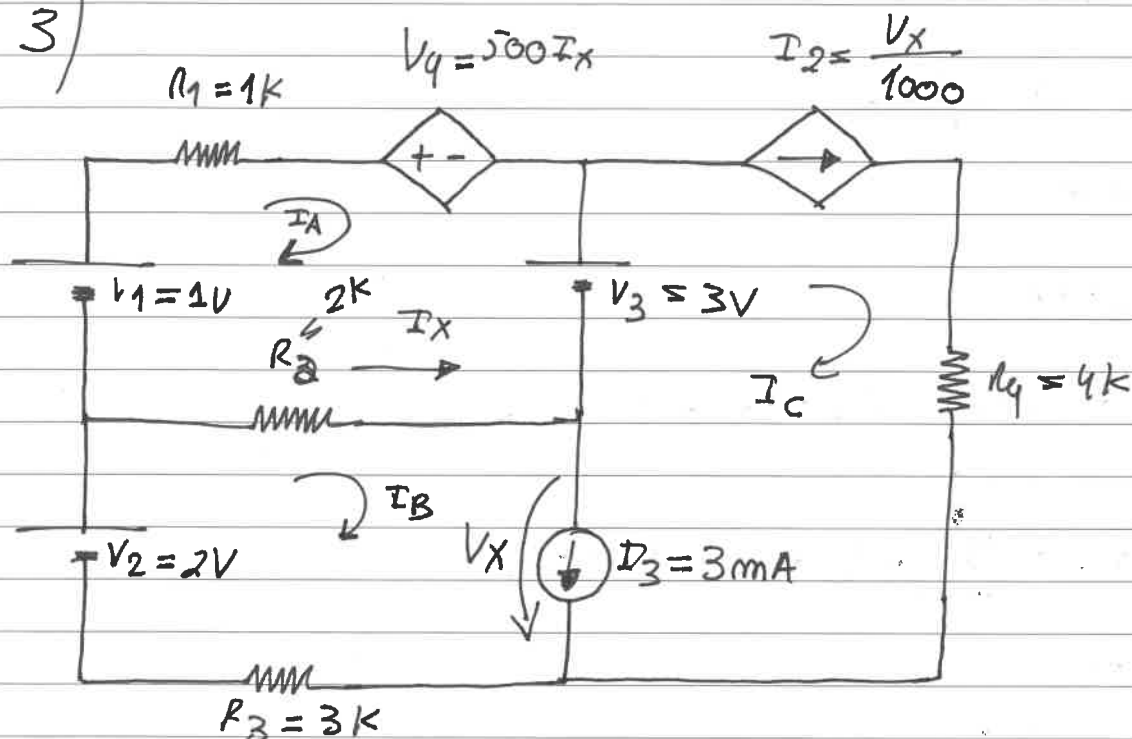 3)
V4 = 500Ix
I2 = Vx
1000
R1 = 1K
+ -
IA
V1 = 1V
2K
R2
Ix
V3 = 3V
IC
R4 = 4K
IB
V2 = 2V
Vx
I3 = 3mA
R3 = 3K